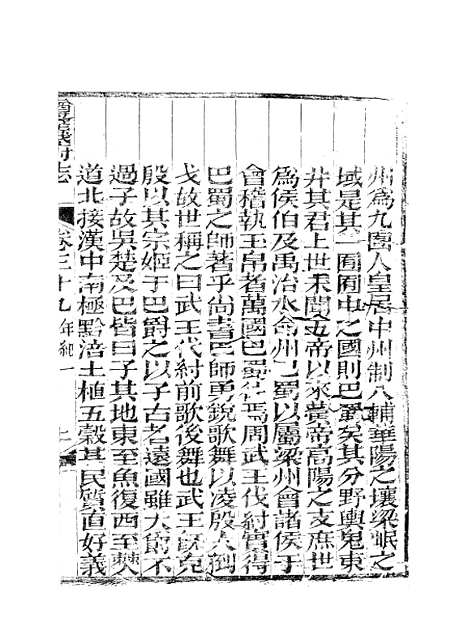 州爲九囿人皇居中州制八輔華陽之壤梁岷之
域是其一囿囿中之國則巴蜀矣其分野輿鬼東
井其君上世未聞五帝以來黃帝高陽之支庶世
爲侯伯及禹治水命州巴蜀以屬梁州會諸侯于
會稽執玉帛者萬國巴蜀往焉周武王伐紂實得
巴蜀之師著乎尚書巴師勇銳歌舞以凌殷人倒
戈故世稱之曰武王伐紂前歌後舞也武王旣克
殷以其宗姬于巴爵之以子古者遠國雖大爵不
過子故吳楚及巴皆曰子其地東至魚復西至僰
道北接漢中南極黔涪土植五穀其民質直好義
卷三十九 年紀一